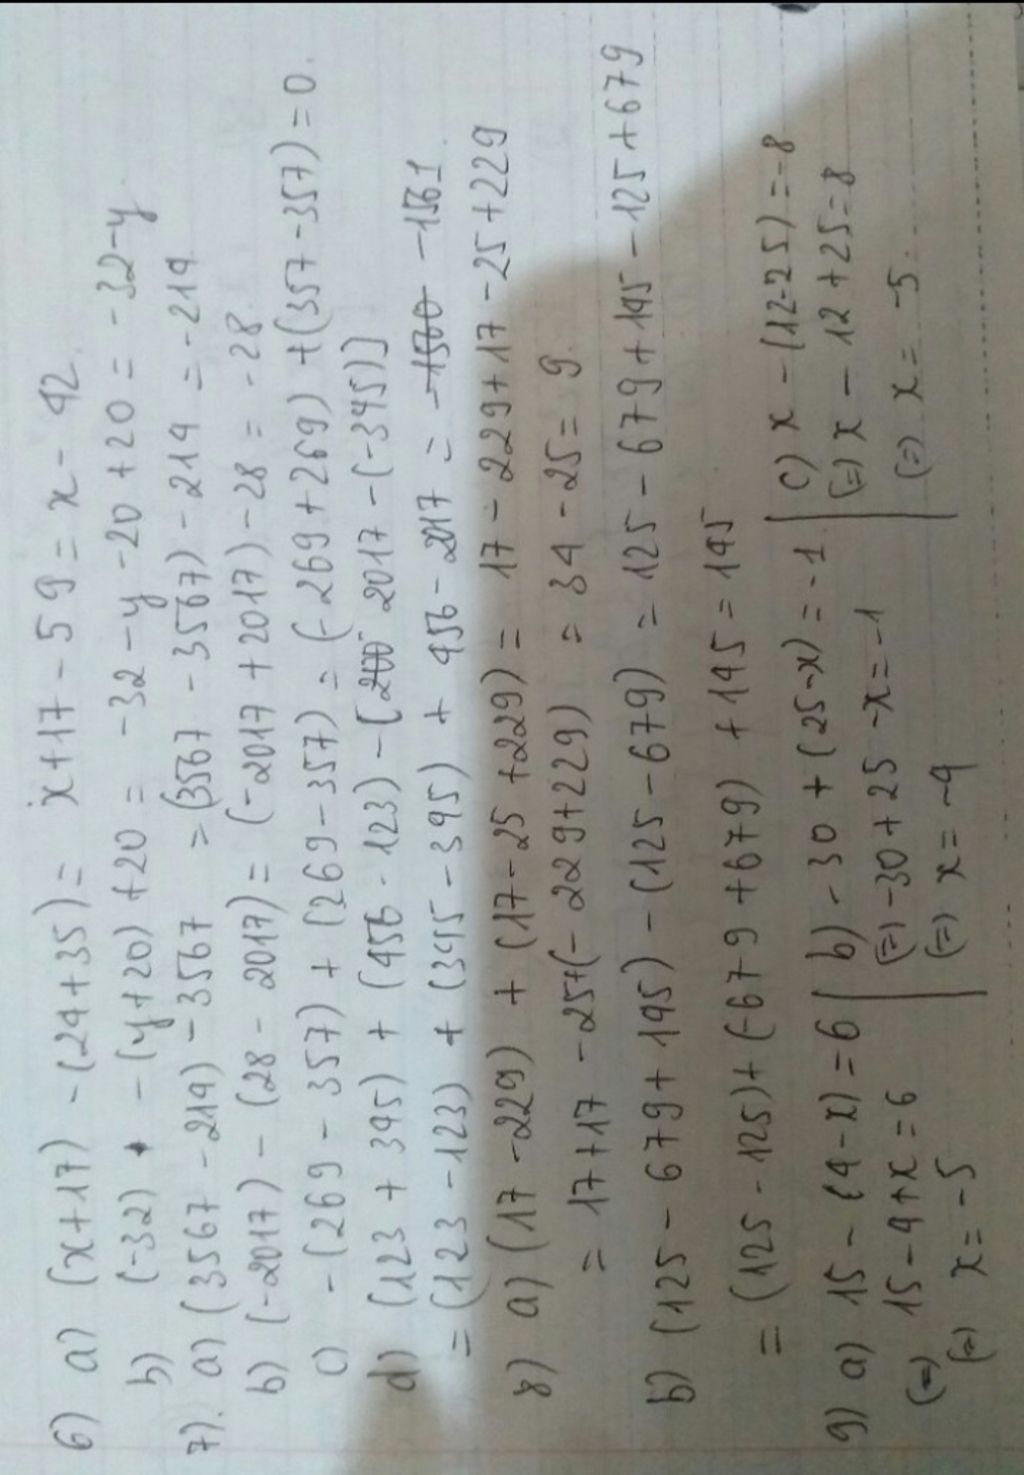 6) a) (x+17) - (24+35) = x+17 - 59 = x - 42
b) (-32) - (y+20) +20 = -32 - y -20 +20 = -32-y
7). a) (3567 -214) -3567 = (3567 - 3567) - 214 = -214
b) (-2017) - (28 - 2017) = (-2017 + 2017) -28 = -28
c) -(269 - 357) + (269-357) = (-269+269) +(357-357) = 0.
d) (123 + 345) + (456 - 123) - [2017 -(-345)]
= (123 -123) + (345 - 345) + 456 - 2017 = -1561
8) a) (17 -229) + (17-25 +229) = 17 - 229+17 -25 +229
= 17+17 -25+(-229+229) = 34 - 25 = 9.
b) (125 - 679+ 145) - (125 -679) = 125 - 679+145 - 125 +679
= (125 - 125)+(-679 +679) +145 = 145
9) a) 15 - (4-x) = 6 b) -30 + (25-x) = -1 c) x -(12-25) = -8
(=) 15 -4+x = 6 (=) -30+25 -x = -1 (=) x - 12 +25 = 8
(=) x = -5 (=) x = -4 (=) x = -5.